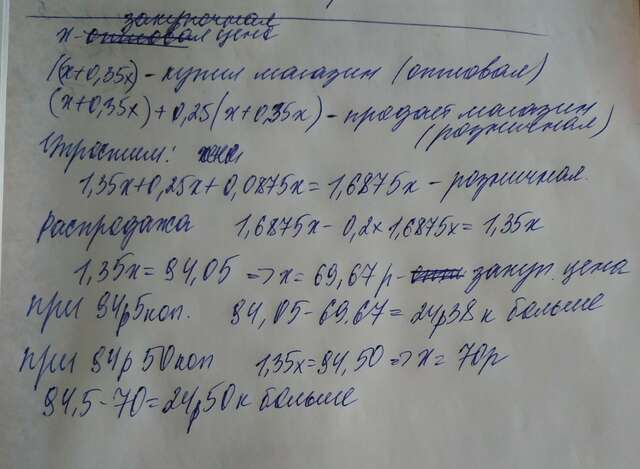 закупочная
x - оптовая цена
(x+0,35x) - купил магазин (оптовая)
(x+0,35x)+0,25(x+0,35x) - продаст магазин
(розничная)
Упростим:
1,35x+0,25x+0,0875x=1,6875x - розничная.
Распродажа 1,6875x-0,2×1,6875x=1,35x
1,35x=94,05 => x=69,67р - закуп. цена
при 94р5коп. 94,05-69,67=24р38к больше
при 94р 50коп 1,35x=94,50 => x=70р
94,5-70=24р50к больше